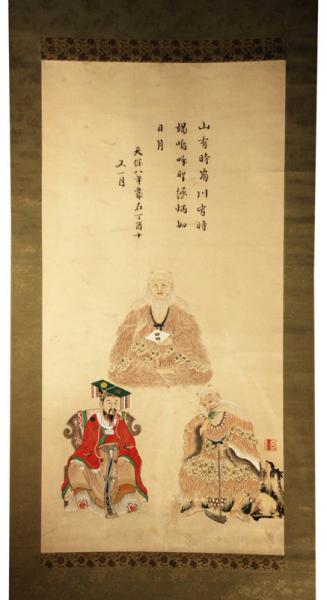 山有時崩川有時
竭嗚呼聖德炳如
日月
天保八年歳在丁酉十
又一月